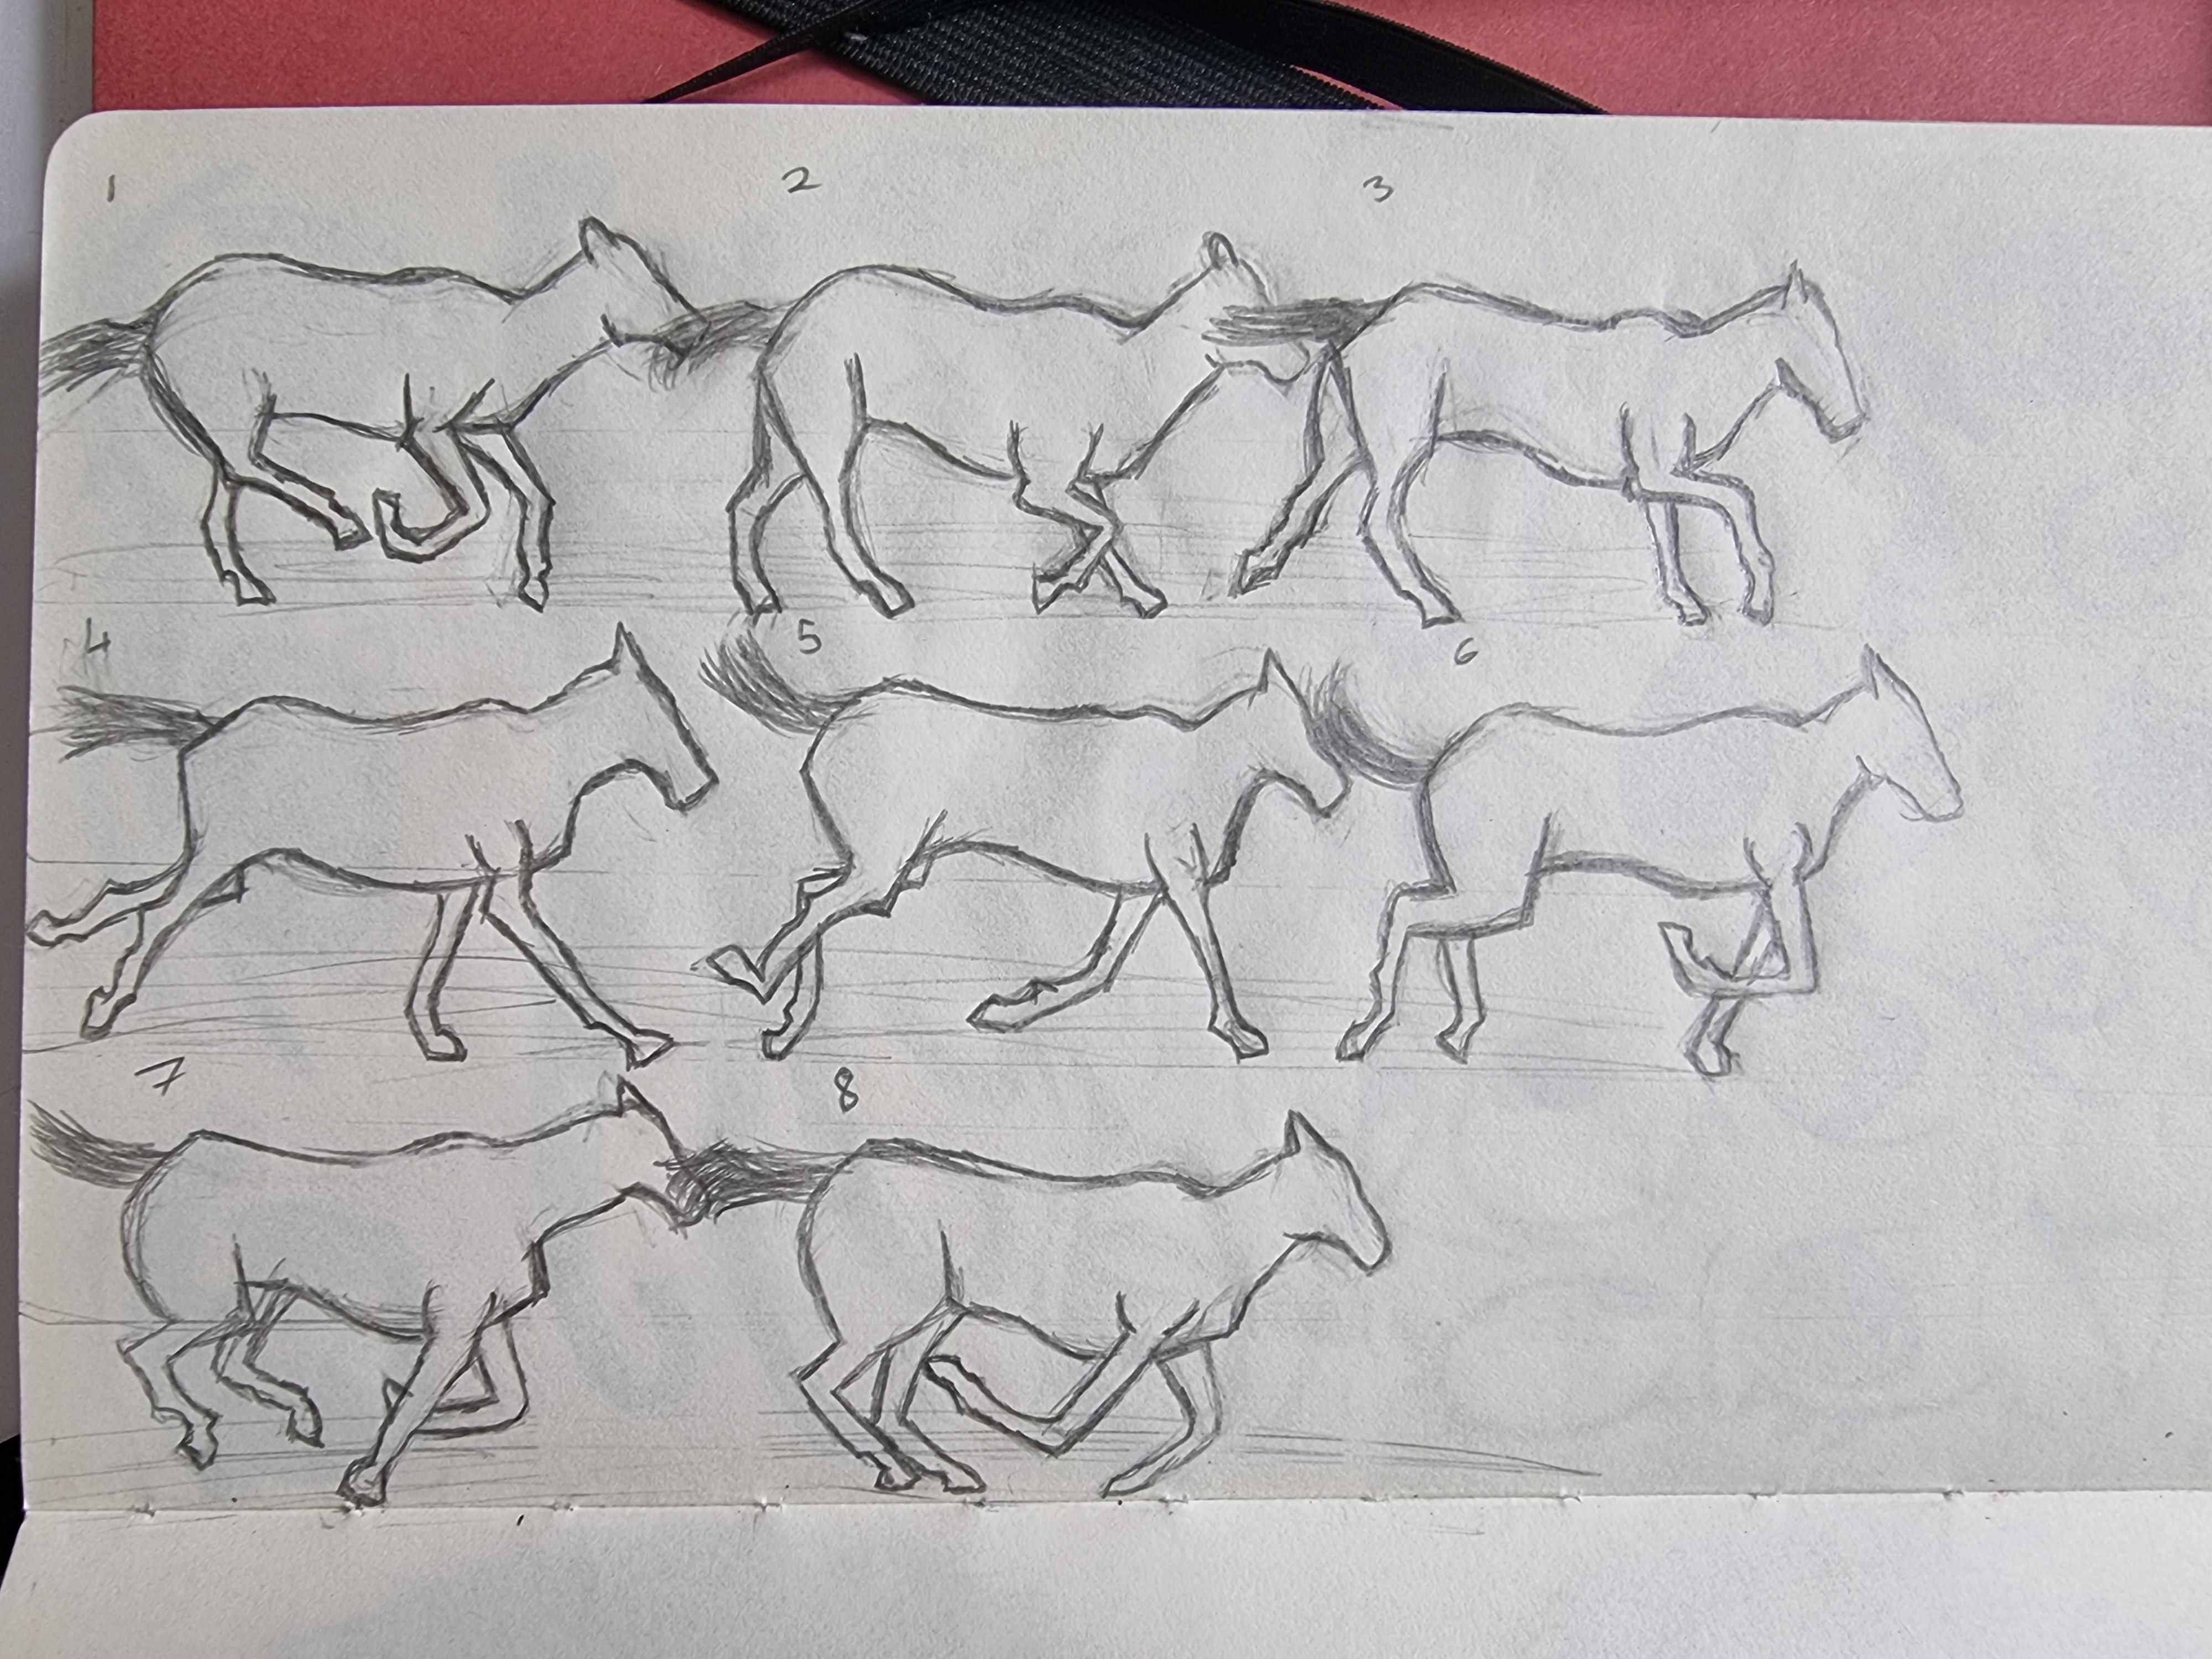 1 2 3
4 5 6
7 8